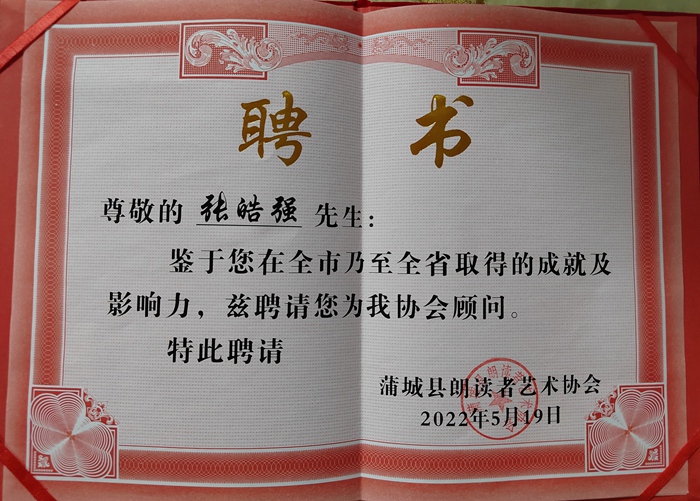 聘书
尊敬的 张皓强 先生：
鉴于您在全市乃至全省取得的成就及
影响力，兹聘请您为我协会顾问。
特此聘请
蒲城县朗读者艺术协会
2022年5月19日